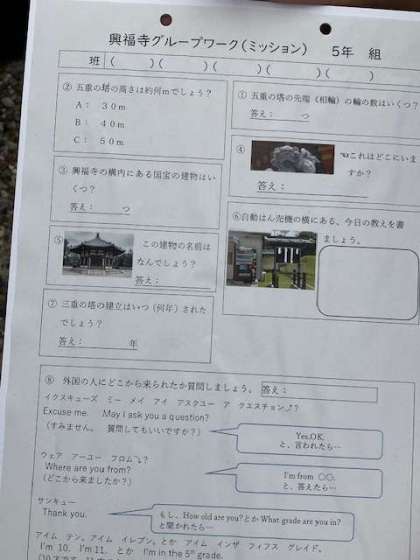 興福寺グループワーク（ミッション）　5年　組
班（　　）（　　）（　　）（　　）（　　）
① 五重の塔の先端（相輪）の輪の数はいくつ？
答え：　つ
② 五重の塔の高さは約何mでしょう？
A：　30m
B：　40m
C：　50m
③ 興福寺の構内にある国宝の建物はいくつ？
答え：　つ
④
☜これはどこにいますか？
答え：
⑤
この建物の名前はなんでしょう？
答え：
⑥自動はん売機の横にある、今日の教えを書きましょう。
⑦ 三重の塔の建立はいつ（何年）されたでしょう？
答え：　年
⑧　外国の人にどこから来られたか質問しましょう。
答え：
イクスキューズ　ミー　メイ　アイ　アスクユー　ア　クエスチョン⤴？
Excuse me.　May I ask you a question?
（すみません。　質問してもいいですか？）
Yes,OK.
と、言われたら…
ウェア　アーユー　フロム⤵？
Where are you from?
（どこから来ましたか？）
I'm from　○○.
と、答えたら…
サンキュー
Thank you.
もし、How old are you?とか What grade are you in?
と聞かれたら…
アイム　テン。アイム　イレブン。とか　アイム　インザ　フィフス　グレイド。
I'm 10.　I'm 11.　とか　I'm in the 5th grade.